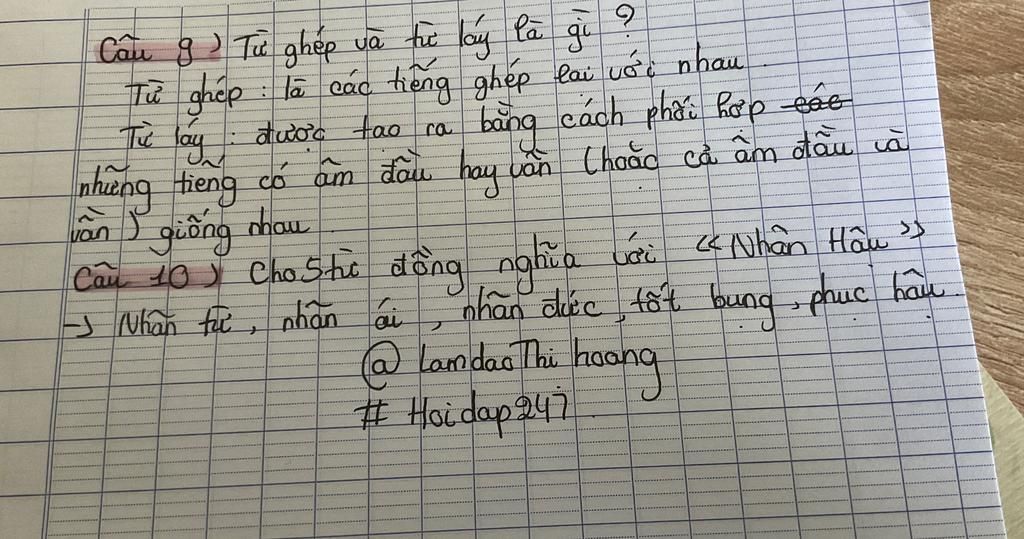 Câu 9) Từ ghép và từ láy là gì ?
Từ ghép : là các tiếng ghép lại với nhau.
Từ láy : được tạo ra bằng cách phối hợp các
những tiếng có âm đầu hay vần (hoặc cả âm đầu và
vần) giống nhau.
Câu 10) Cho 5 từ đồng nghĩa với << Nhân Hậu >>
-> Nhân từ, nhân ái, nhân đức, tốt bụng, phúc hậu.
@ lamdaoThihoang
# Hoidap247